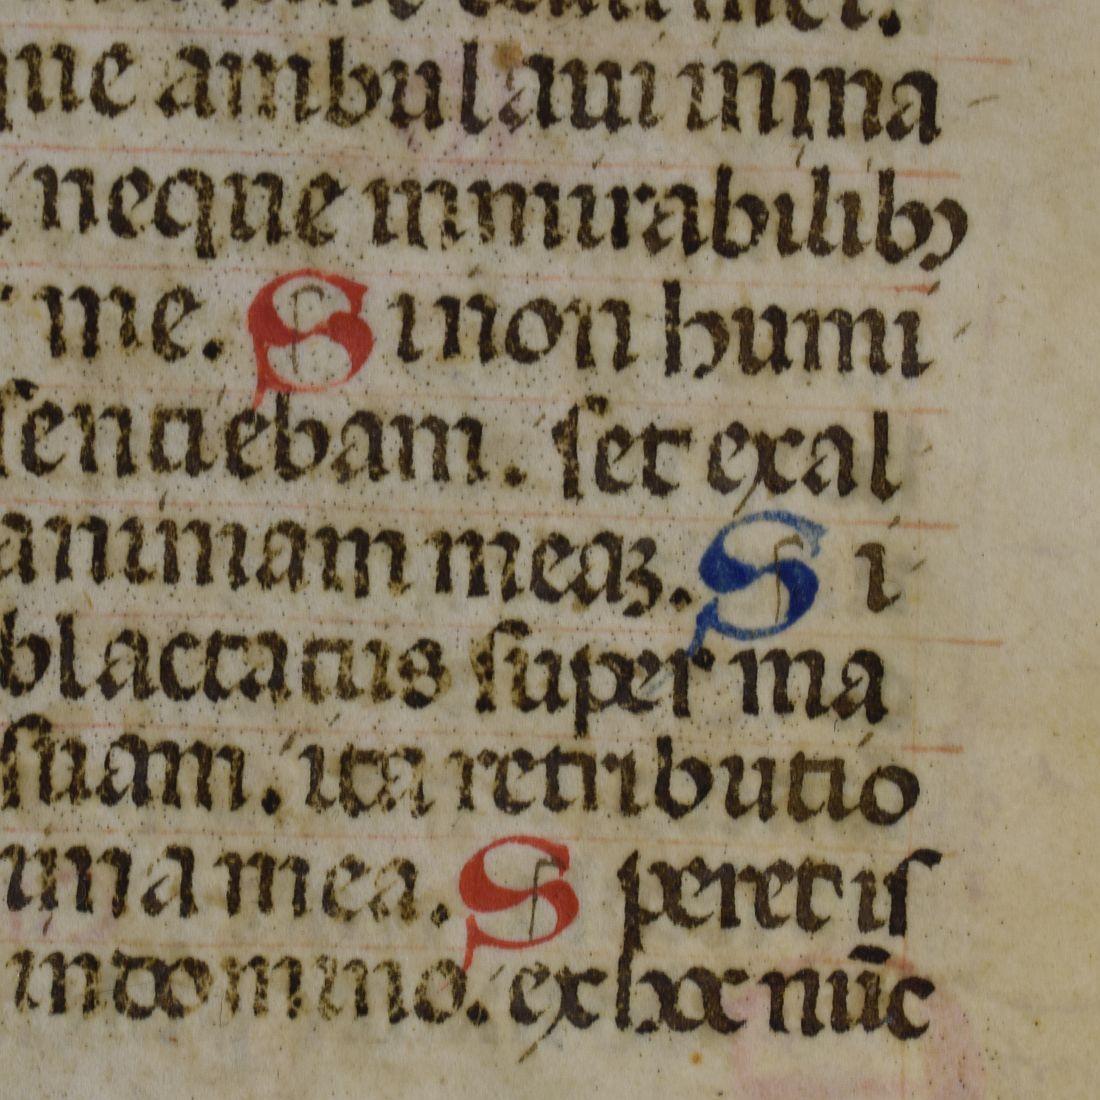 que ambulaui inma
neque inmirabilibꝫ
me. Sinon humi
sentiebam. set exal
animam meaʒ. Si
blactatus super ma
suam. ita retributio
anima mea. Speret is
indomino. ex hoc nūc